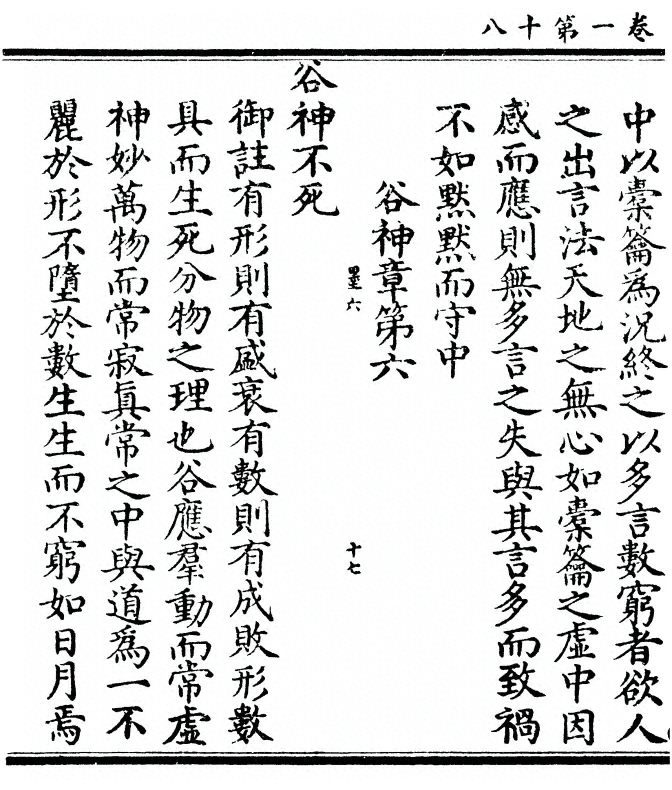 卷一第十八
中以橐籥為況終之以多言數窮者欲人
之出言法天地之無心如橐籥之虛中因
感而應則無多言之失與其言多而致禍
不如默默而守中
谷神章第六
墨六
十七
谷神不死
御註有形則有盛衰有數則有成敗形數
具而生死分物之理也谷應羣動而常虛
神妙萬物而常寂真常之中與道為一不
麗於形不墮於數生生而不窮如日月焉